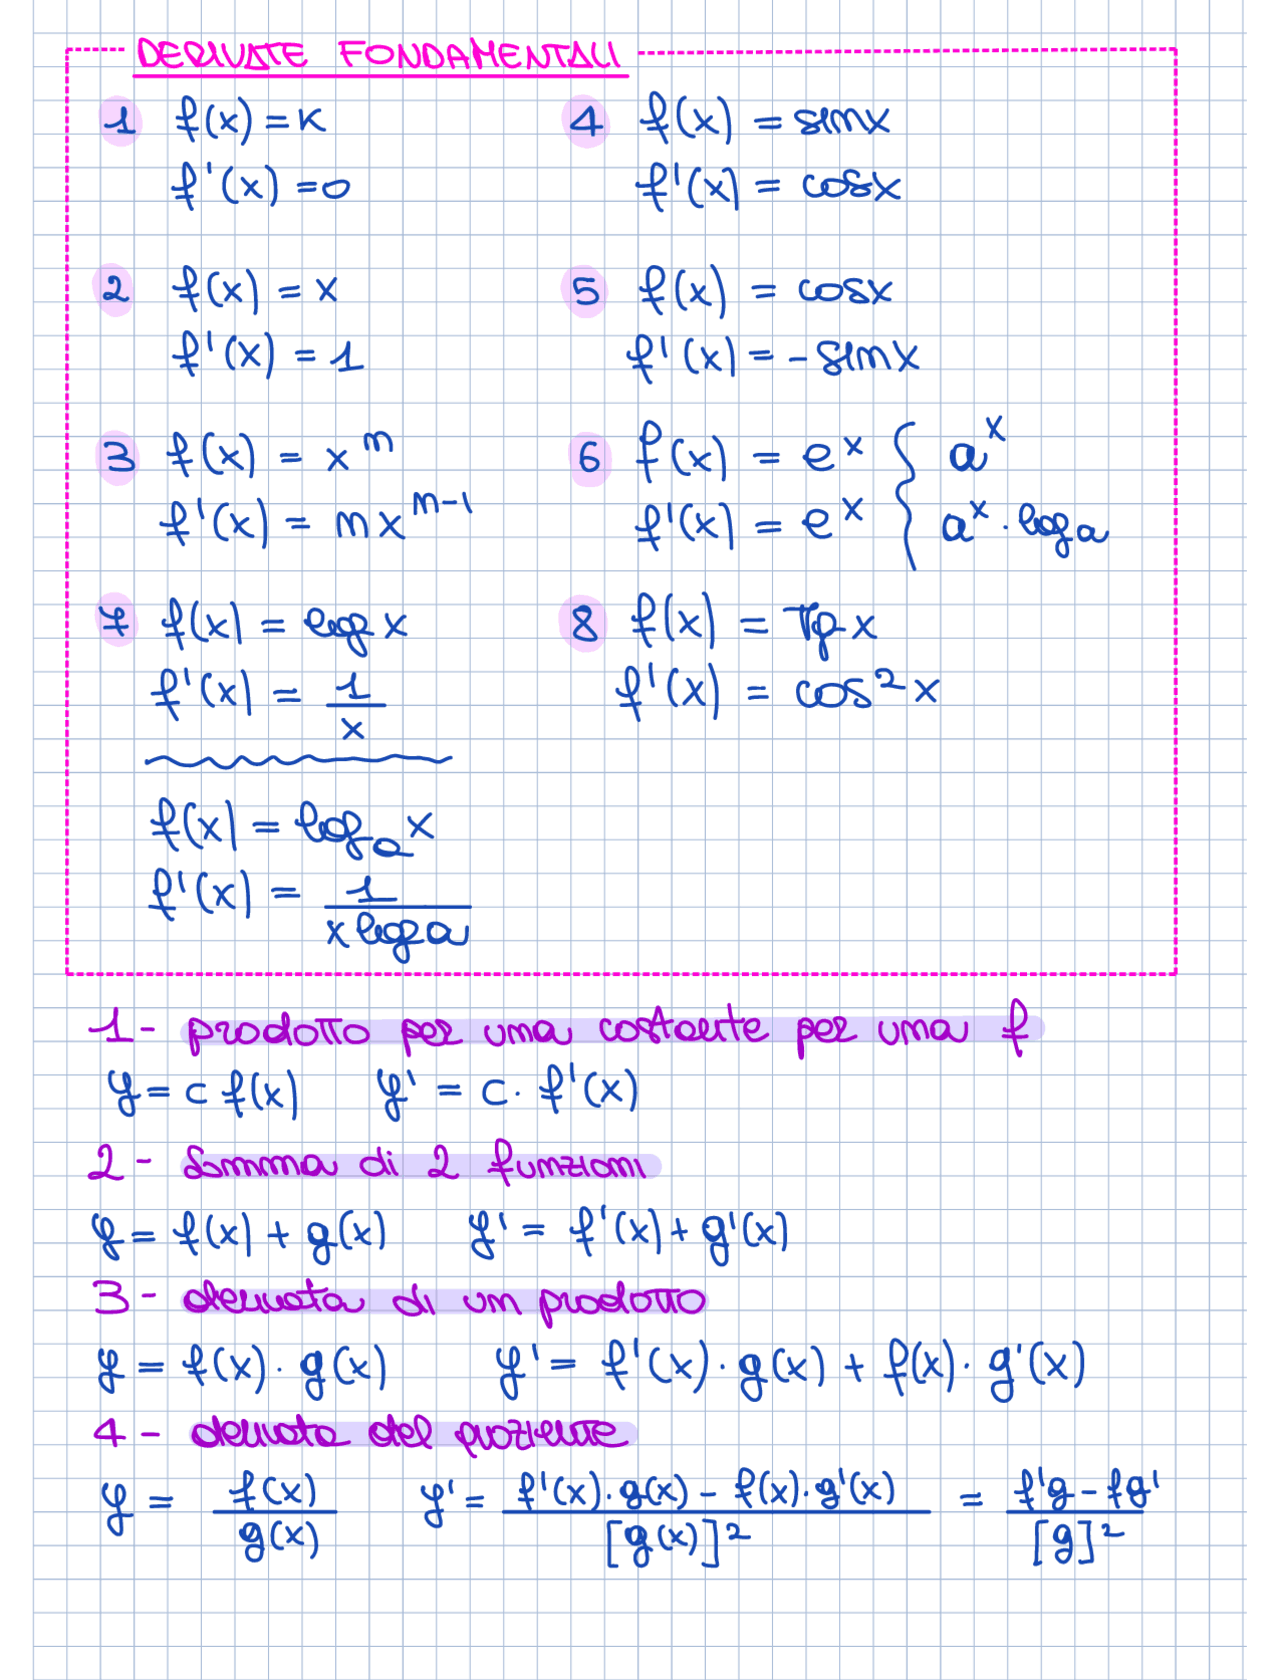 DERIVATE FONDAMENTALI
1 f(x) = K
f'(x) = 0
2 f(x) = x
f'(x) = 1
3 f(x) = x^m
f'(x) = m x^(m-1)
4 f(x) = sin x
f'(x) = cos x
5 f(x) = cos x
f'(x) = - sin x
6 f(x) = e^x { a^x
f'(x) = e^x { a^x · log a
7 f(x) = log x
f'(x) = 1/x
f(x) = log_a x
f'(x) = 1/(x log a)
8 f(x) = Tg x
f'(x) = cos² x
1- prodotto per una costante per una f
y = c f(x) y' = c · f'(x)
2- Somma di 2 funzioni
y = f(x) + g(x) y' = f'(x) + g'(x)
3- derivata di un prodotto
y = f(x) · g(x) y' = f'(x) · g(x) + f(x) · g'(x)
4- derivata del quoziente
y = f(x)/g(x) y' = (f'(x) · g(x) - f(x) · g'(x))/[g(x)]² = (f'g - fg')/[g]²